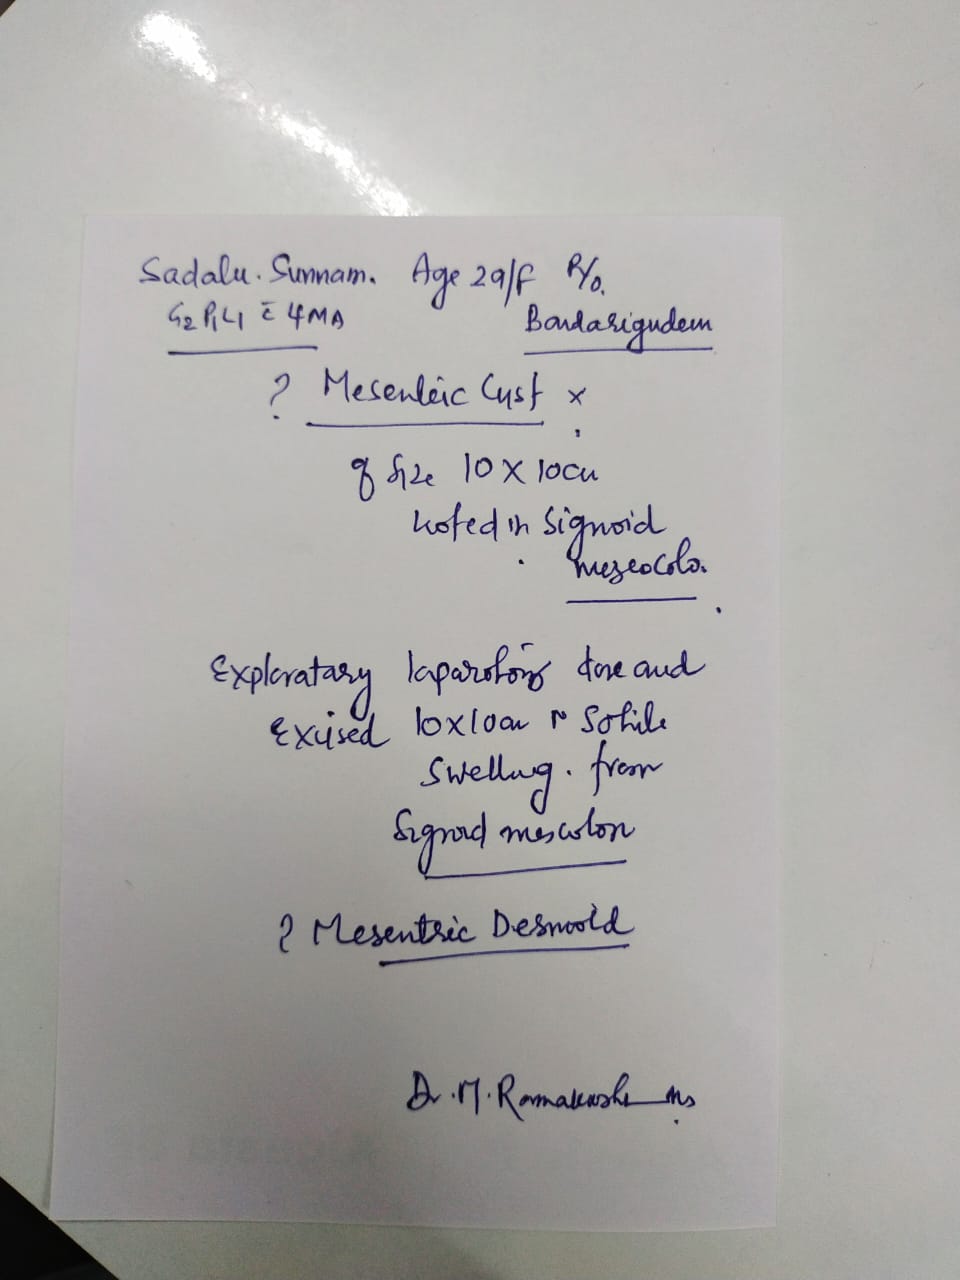 Sadalu. Sunnam. Age 29/F R/o.
G2 P1L1 c̄ 4MA Bandarigudem
? Mesenteic Cyst x
of size 10 X 10cm
noted in Sigmoid
mesocolo.
Exploratary laparotomy done and
Excised 10x10cm
Swelling. from
Sigmoid mescolon
? Mesentric Desmoid
Dr. M. Ramakrishna MS